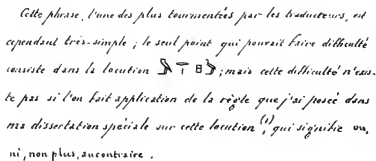 Cette phrase, l'une des plus tourmentées par les traducteurs, est
cependant très-simple ; le seul point qui pourrait faire difficulté
consiste dans la locution ; mais cette difficulté n'exis-
te pas si l'on fait application de la règle que j'ai posée dans
ma dissertation spéciale sur cette locution (1), qui signifie ou,
ni, non plus, au contraire.